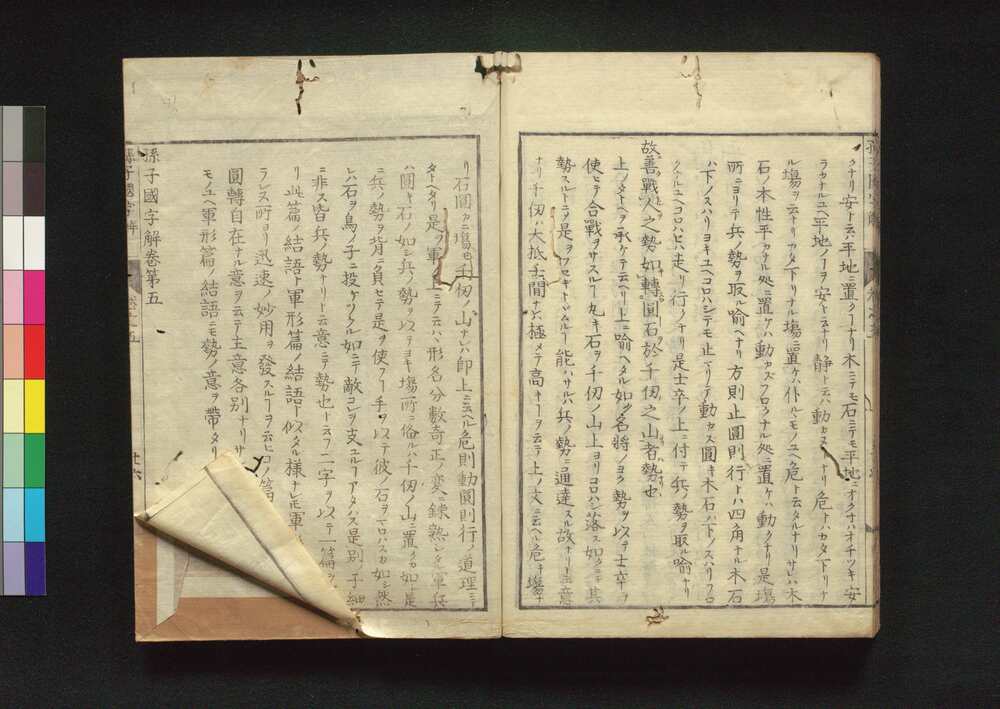 クナリ安ト云ハ平地ニ置クーナリ木ニテモ石ニテモ平地ニオクナハオチツキ安
ラカナルユヘ平地ノーヲ安トスナリ静トハ動カスーナリ危トハカタ下リナ
ル塲ヲ云ナリカタ下リナル塲ニ置ケハ仆ルモノユヘ危ト云タルナリサレハ木
石ノ木性平カナル処ニ置ケハ動カスフロクナル処ニ置ケハ動クナリ是塲
所ニヨリテ兵ノ勢ヲ取ル喻ヘナリ方則止圓則行トハ四角ナル木石
ハ下ノスハリヨキユヘコロハシテモ止テ動カス圓キ木石ハ下ノスハリフロ
クナルユヘコロハセハ走リ行ノナリ是士卒ノ上ニ付テ兵ノ勢ヲ取ル喻ナリ
故善戰人之勢如轉圓石於千仞之山者勢也
上ノタトヘヲ承ケテ云ヘリ上ニ喻ヘタル如ク名將ノヨク勢ヲ以テ士卒ヲ
使ヒテ合戰ヲサスルー丸キ石ヲ千仞ノ山上ヨリコロハシ落ス如クニテ其
勢スルトニヲ是ヲフセキトヽムルー能ハサルハ兵ノ勢ニ通達スル故ナリト云意
ナリ千仞ハ大抵千間ナレハ極メテ高キーヲ云テ上ノ文ニ云ヘル危キ塲ナ
リ石圓カニ塲モ千仞ノ山ナレハ即上ニ云ヘル危則動圓則行ノ道理ニテ
タトヘタリ是ヲ軍ノ上ニテ云ハヽ形名分數奇正ノ変ニ錬熟シタル軍兵
ハ圓キ石ノ如シ兵ノ勢ヲ以テヨキ塲所ニ備ルハ千仞ノ山ニ置クカ如シ是
ニ兵ノ勢ヲ背ニ負セテ是ヲ使フー手ヲ以テ彼ノ石ヲマロハスカ如シ然
レハ石ヲ鳥ノ子ニ投ケツクル如ニテ敵コレヲ支ユルーアタハス是別ノ子細
ニ非ス皆兵ノ勢ナリト云意ニテ勢也ト云フ二字ヲ以テ一篇ヲ
リ此篇ノ結語ト軍形篇ノ結語ト似タル様ナレモ軍
ラレス一所ヨリ迅速ノ妙用ヲ發スルーヲ云ヒコノ篇
圓轉自在ナル意ヲ云テ主意各別ナリサ
モノユヘ軍形篇ノ結語ニモ勢ノ意ヲ帶タリ
孫子國字解卷第五